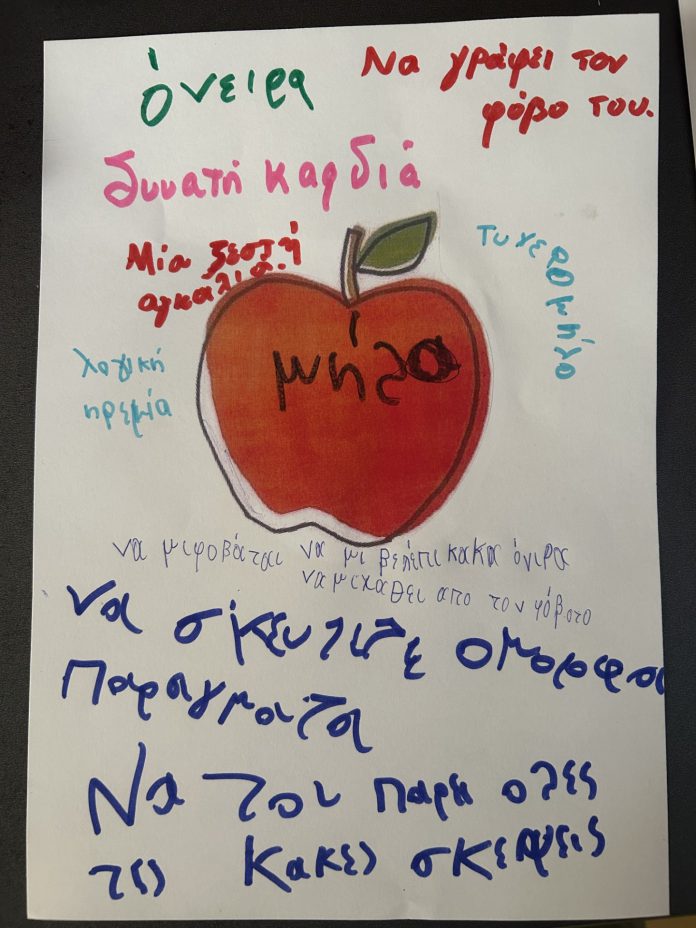 όνειρα
Να γράψει τον
φόβο του.
δυνατή καρδιά
Μία ζεστή
αγκαλιά.
τυχερο μήλο
λογική
ηρεμία
μήλο
να μιφοβάται να μι βελέπι κακα όνιρα
να μιχαθει απο τον φόβοτο
να ομορφα
Παραγματα
Να του παρι ολες
τες κακες σκεψεις